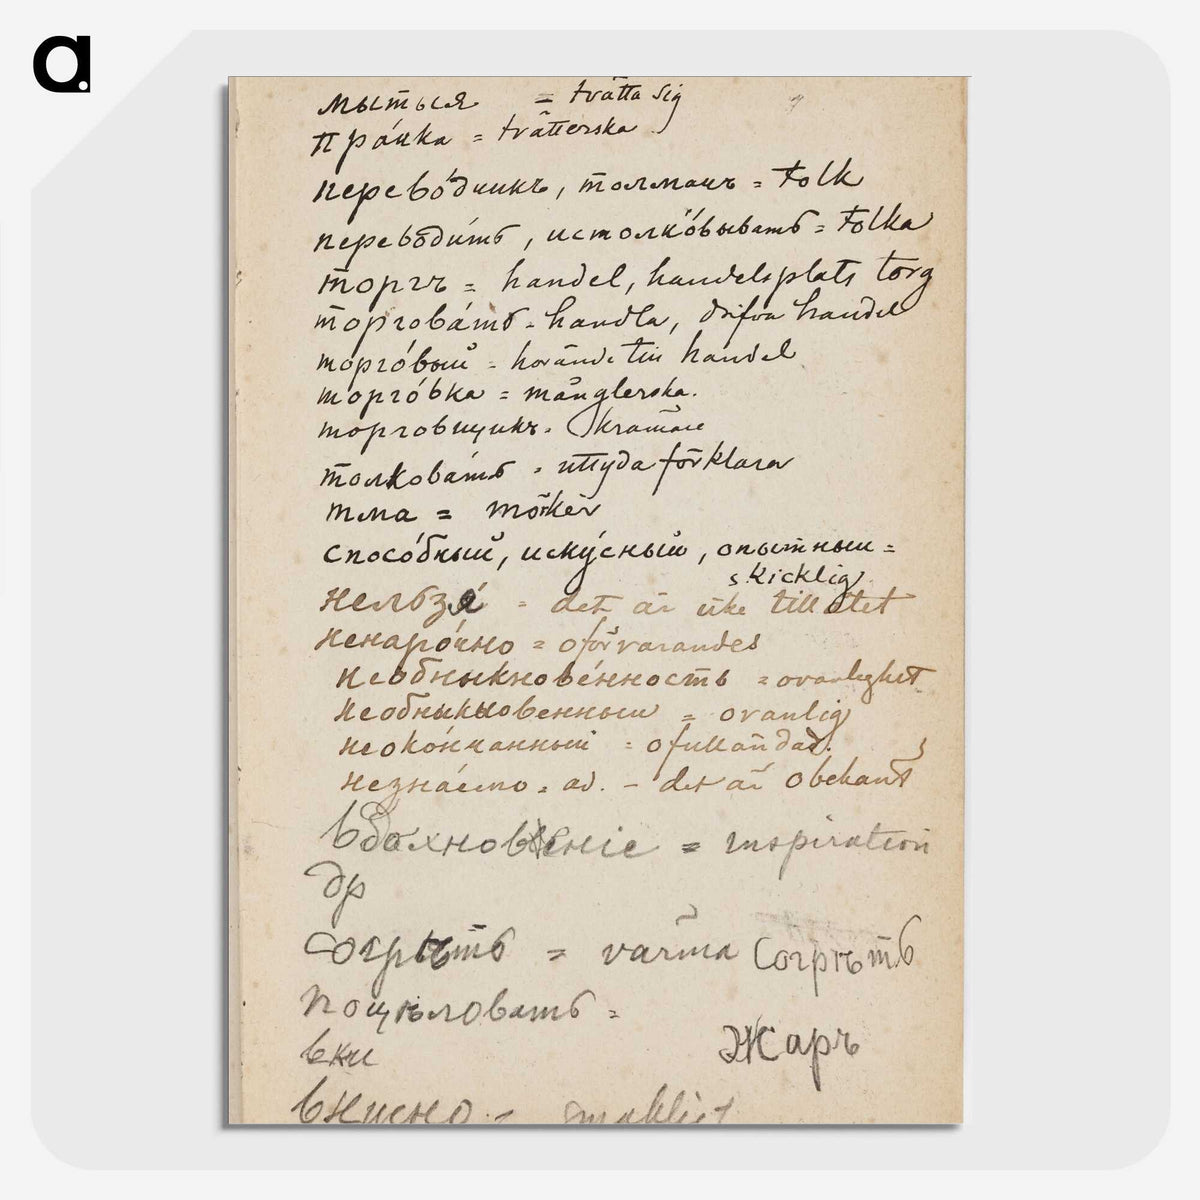 a.
мыться = tvätta sig
пра́чка = tvätterska
перево́дчикъ, толмачъ = tolk
переводи́ть, истолко́вывать = tolka
торгъ = handel, handelsplats torg
торгова́ть = handla, drifva handel
торго́вый = hörande till handel
торго́вка = månglerska.
торговщикъ = krämare
толкова́ть = uttyda förklara
тма = mörker
спосо́бный, иску́сный, опытный =
skicklig
нельзя́ = det är icke tillåtet
ненаро́чно = oförvarandes
необыкнове́нность = ovanlighet
необыкновенный = ovanlig
неоко́нчанный = ofulländad.
незна́емо = ad. – det är obekant
вдохновеніе = inspiration
др
согрѣть = värma согрѣть
поцѣловать =
жаръ
вки
вкусно = smakligt